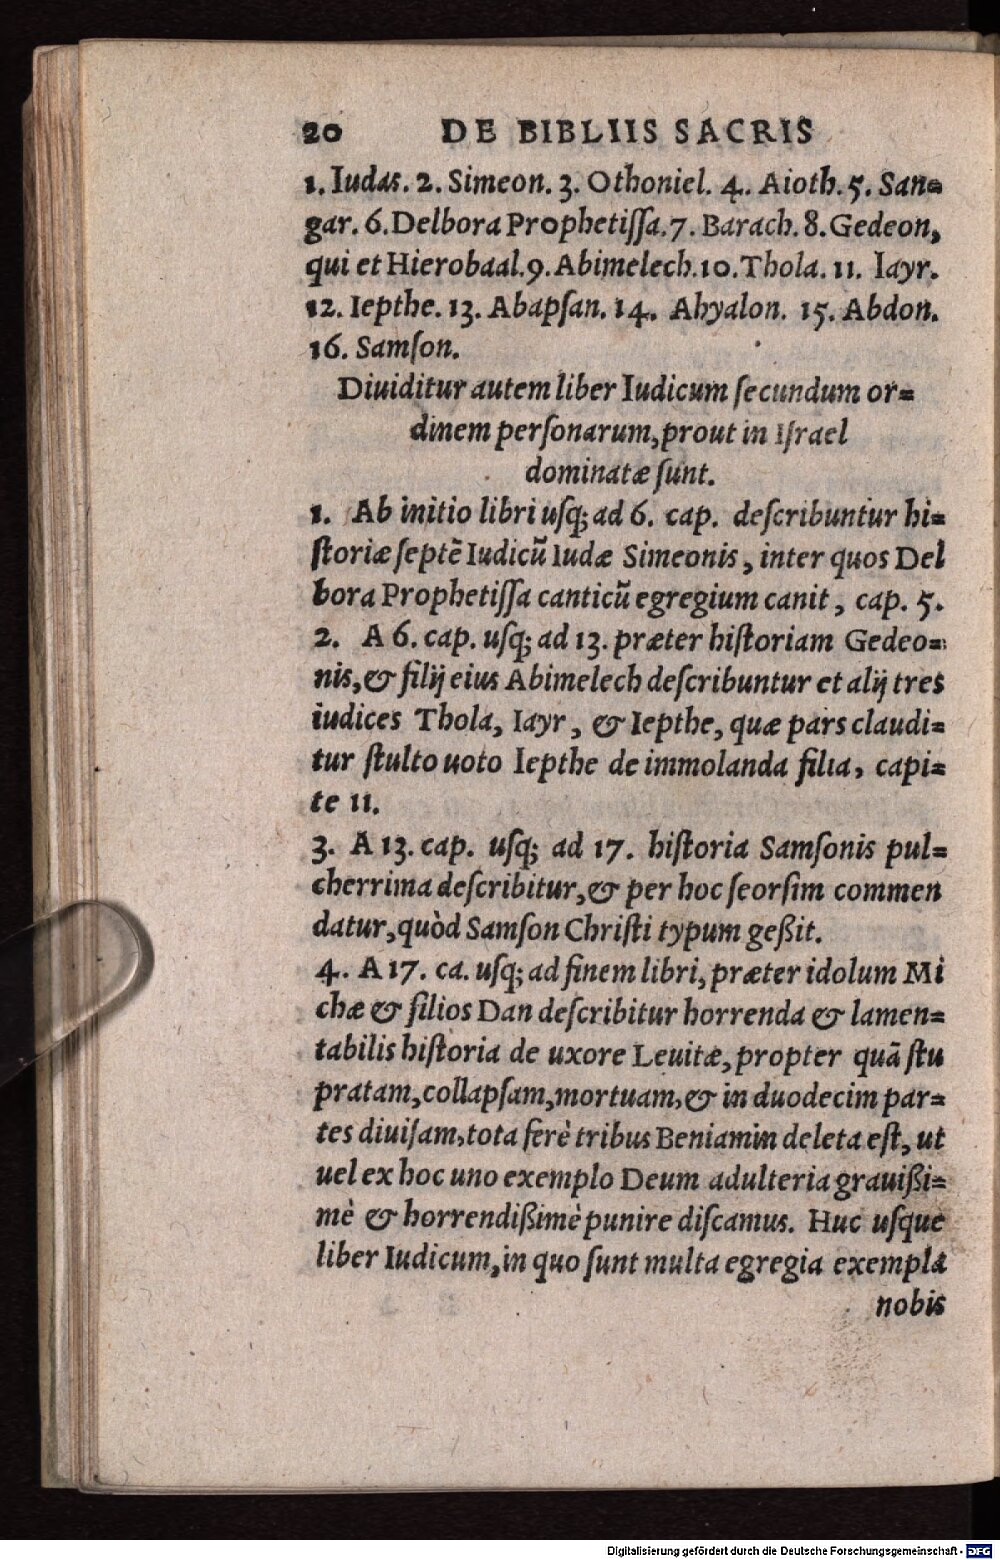 20 DE BIBLIIS SACRIS
1. Iudas. 2. Simeon. 3. Othoniel. 4. Aioth. 5. San=
gar. 6. Delbora Prophetiſſa. 7. Barach. 8. Gedeon,
qui et Hierobaal. 9. Abimelech. 10. Thola. 11. Iayr.
12. Iepthe. 13. Abapſan. 14. Ahyalon. 15. Abdon.
16. Samſon.
Diuiditur autem liber Iudicum ſecundum or=
dinem perſonarum, prout in Iſrael
dominatæ ſunt.
1. Ab initio libri uſq; ad 6. cap. deſcribuntur hi=
ſtoriæ ſeptẽ Iudicũ Iudæ Simeonis, inter quos Del
bora Prophetiſſa canticũ egregium canit, cap. 5.
2. A 6. cap. uſq; ad 13. præter hiſtoriam Gedeo=
nis, & filij eius Abimelech deſcribuntur et alij tres
iudices Thola, Iayr, & Iepthe, quæ pars claudi=
tur ſtulto uoto Iepthe de immolanda filia, capi=
te 11.
3. A 13. cap. uſq; ad 17. hiſtoria Samſonis pul=
cherrima deſcribitur, & per hoc ſeorſim commen
datur, quòd Samſon Chriſti typum geßit.
4. A 17. ca. uſq; ad finem libri, præter idolum Mi
chæ & filios Dan deſcribitur horrenda & lamen=
tabilis hiſtoria de uxore Leuitæ, propter quã ſtu
pratam, collapſam, mortuam, & in duodecim par=
tes diuiſam, tota ferè tribus Beniamin deleta eſt, ut
uel ex hoc uno exemplo Deum adulteria grauißi=
mè & horrendißimè punire diſcamus. Huc uſque
liber Iudicum, in quo ſunt multa egregia exempla
nobis
Digitalisierung gefördert durch die Deutsche Forschungsgemeinschaft - DFG